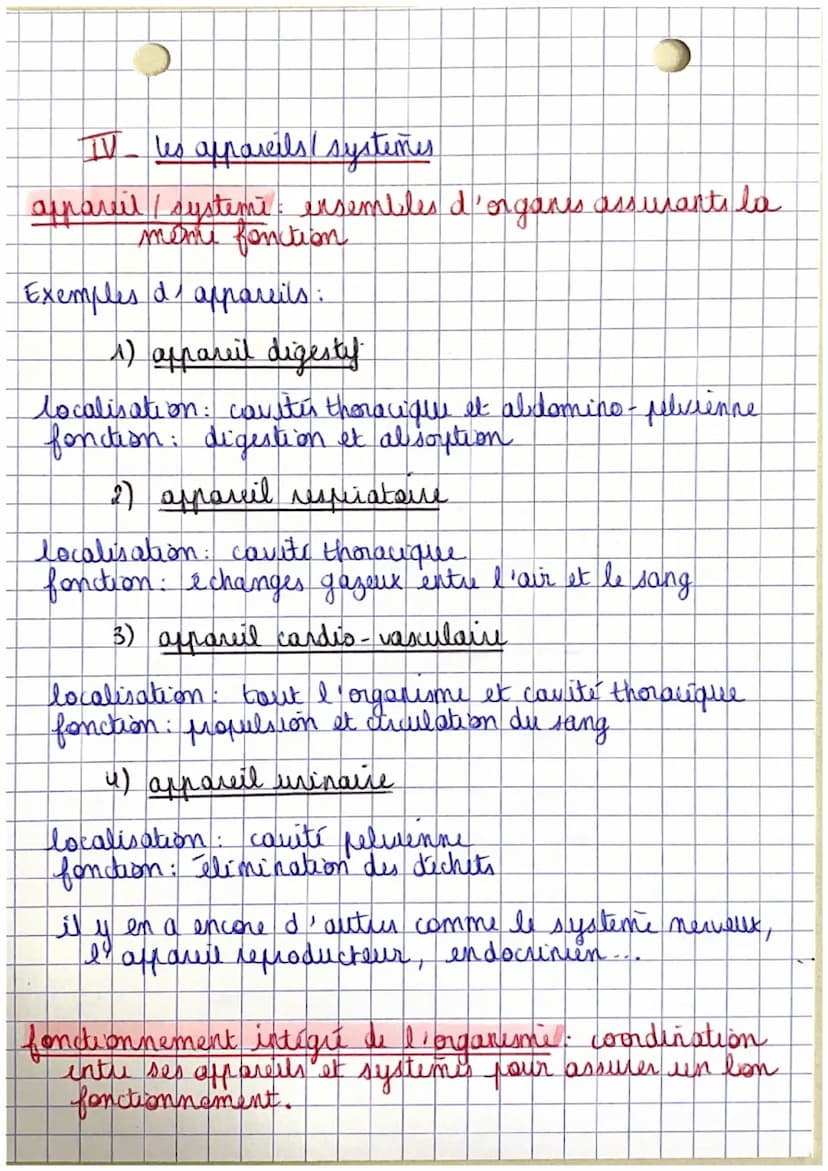 IV - les appareils/systèmes
appareil/système : ensembles d'organes assurants la
même fonction
Exemples d'appareils :
1) appareil digestif
localisation : cavités thoracique et abdomino-pelvienne
fonction : digestion et absorption
2) appareil respiratoire
localisation : cavité thoracique
fonction : échanges gazeux entre l'air et le sang
3) appareil cardio-vasculaire
localisation : tout l'organisme et cavité thoracique
fonction : propulsion et circulation du sang
4) appareil urinaire
localisation : cavité pelvienne
fonction : élimination des déchets
il y en a encore d'autres comme le système nerveux,
l'appareil reproducteur, endocrinien...
fonctionnement intégré de l'organisme : coordination
entre ses appareils et systèmes pour assurer un bon
fonctionnement.